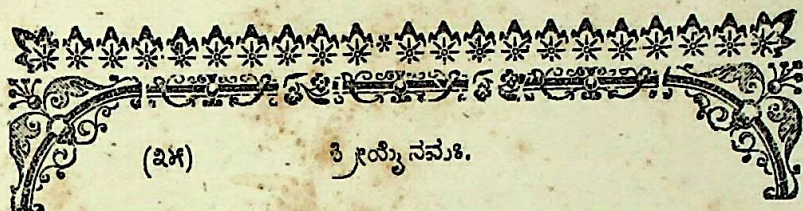 (೩೫) ಶ್ರೀಯೈ ನಮಃ.